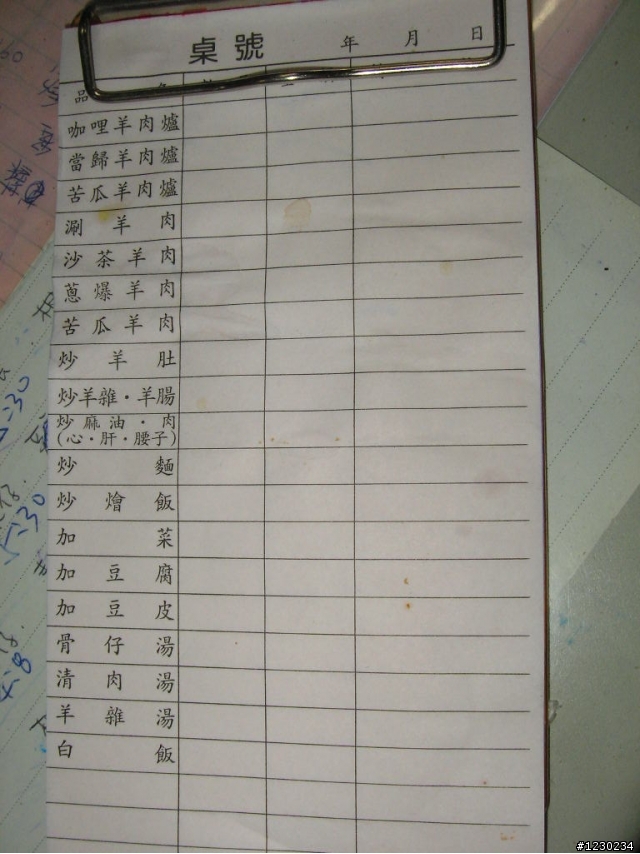 桌號 年 月 日
品
咖哩羊肉爐
當歸羊肉爐
苦瓜羊肉爐
涮羊肉
沙茶羊肉
蔥爆羊肉
苦瓜羊肉
炒羊肚
炒羊雜·羊腸
炒麻油·肉
(心·肝·腰子)
炒麵
炒燴飯
加菜
加豆腐
加豆皮
骨仔湯
清肉湯
羊雜湯
白飯
5:30
#1230234